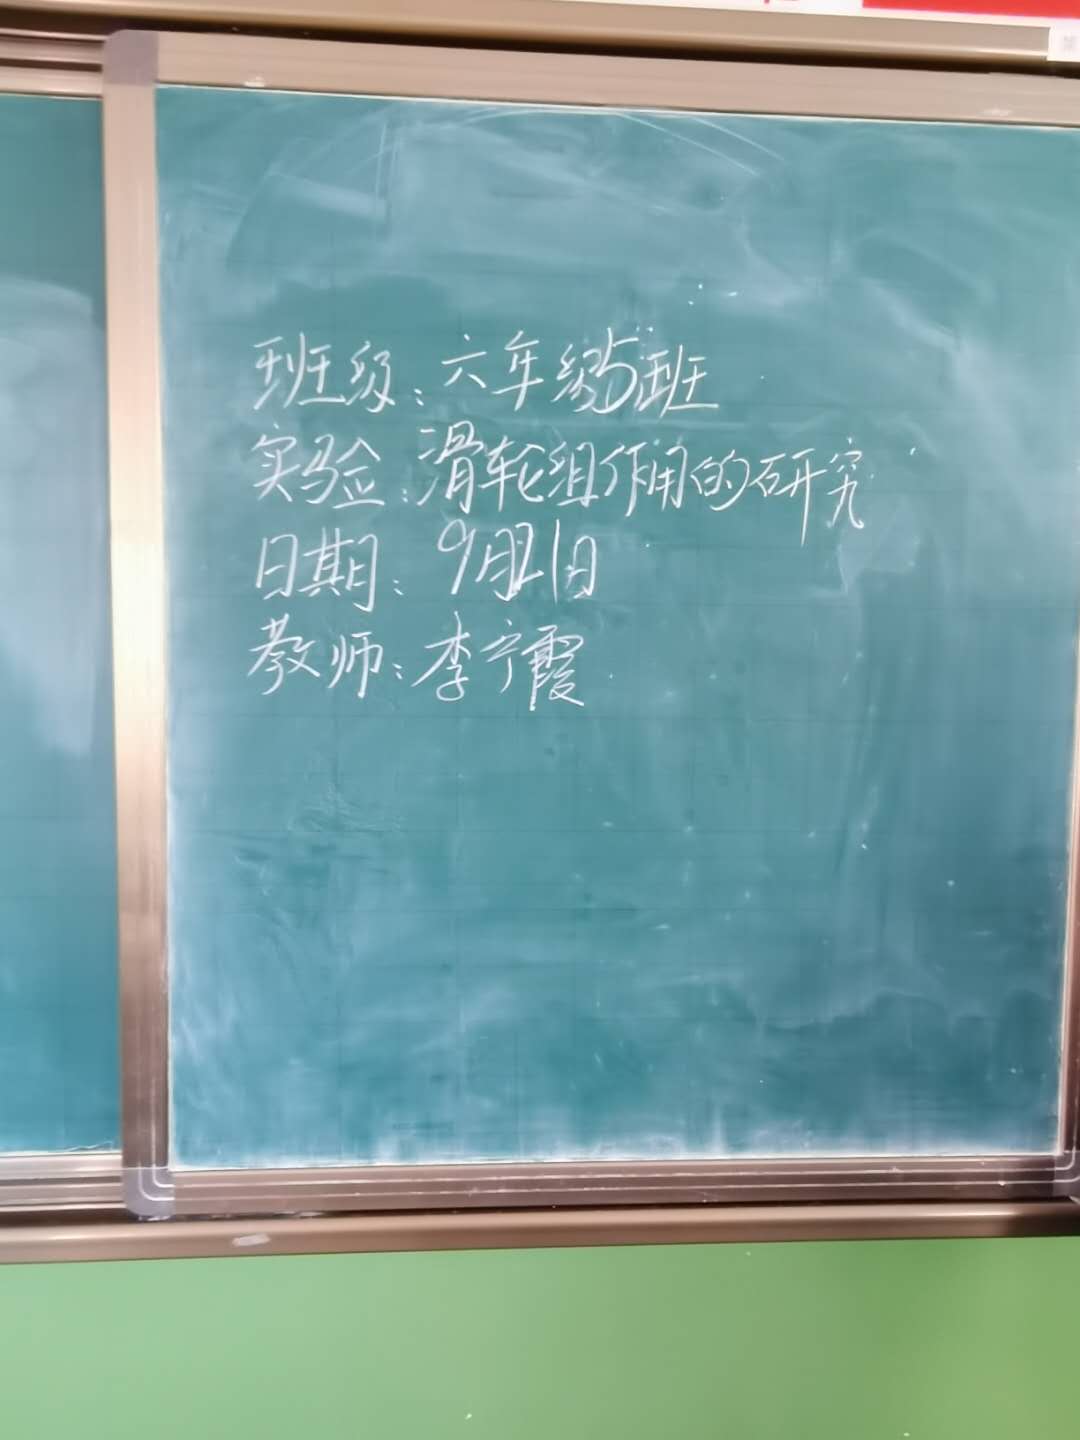 班级：六年级5班
实验：滑轮组作用的研究
日期：9月21日
教师：李宁霞